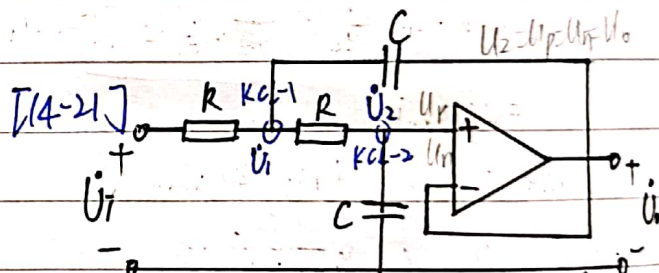 C U2=Up=Un=Uo
[14-21] R KCL-1 R U̇2 Up +
+ U̇1 KCL-2 Un - +
U̇i C U̇o
- -